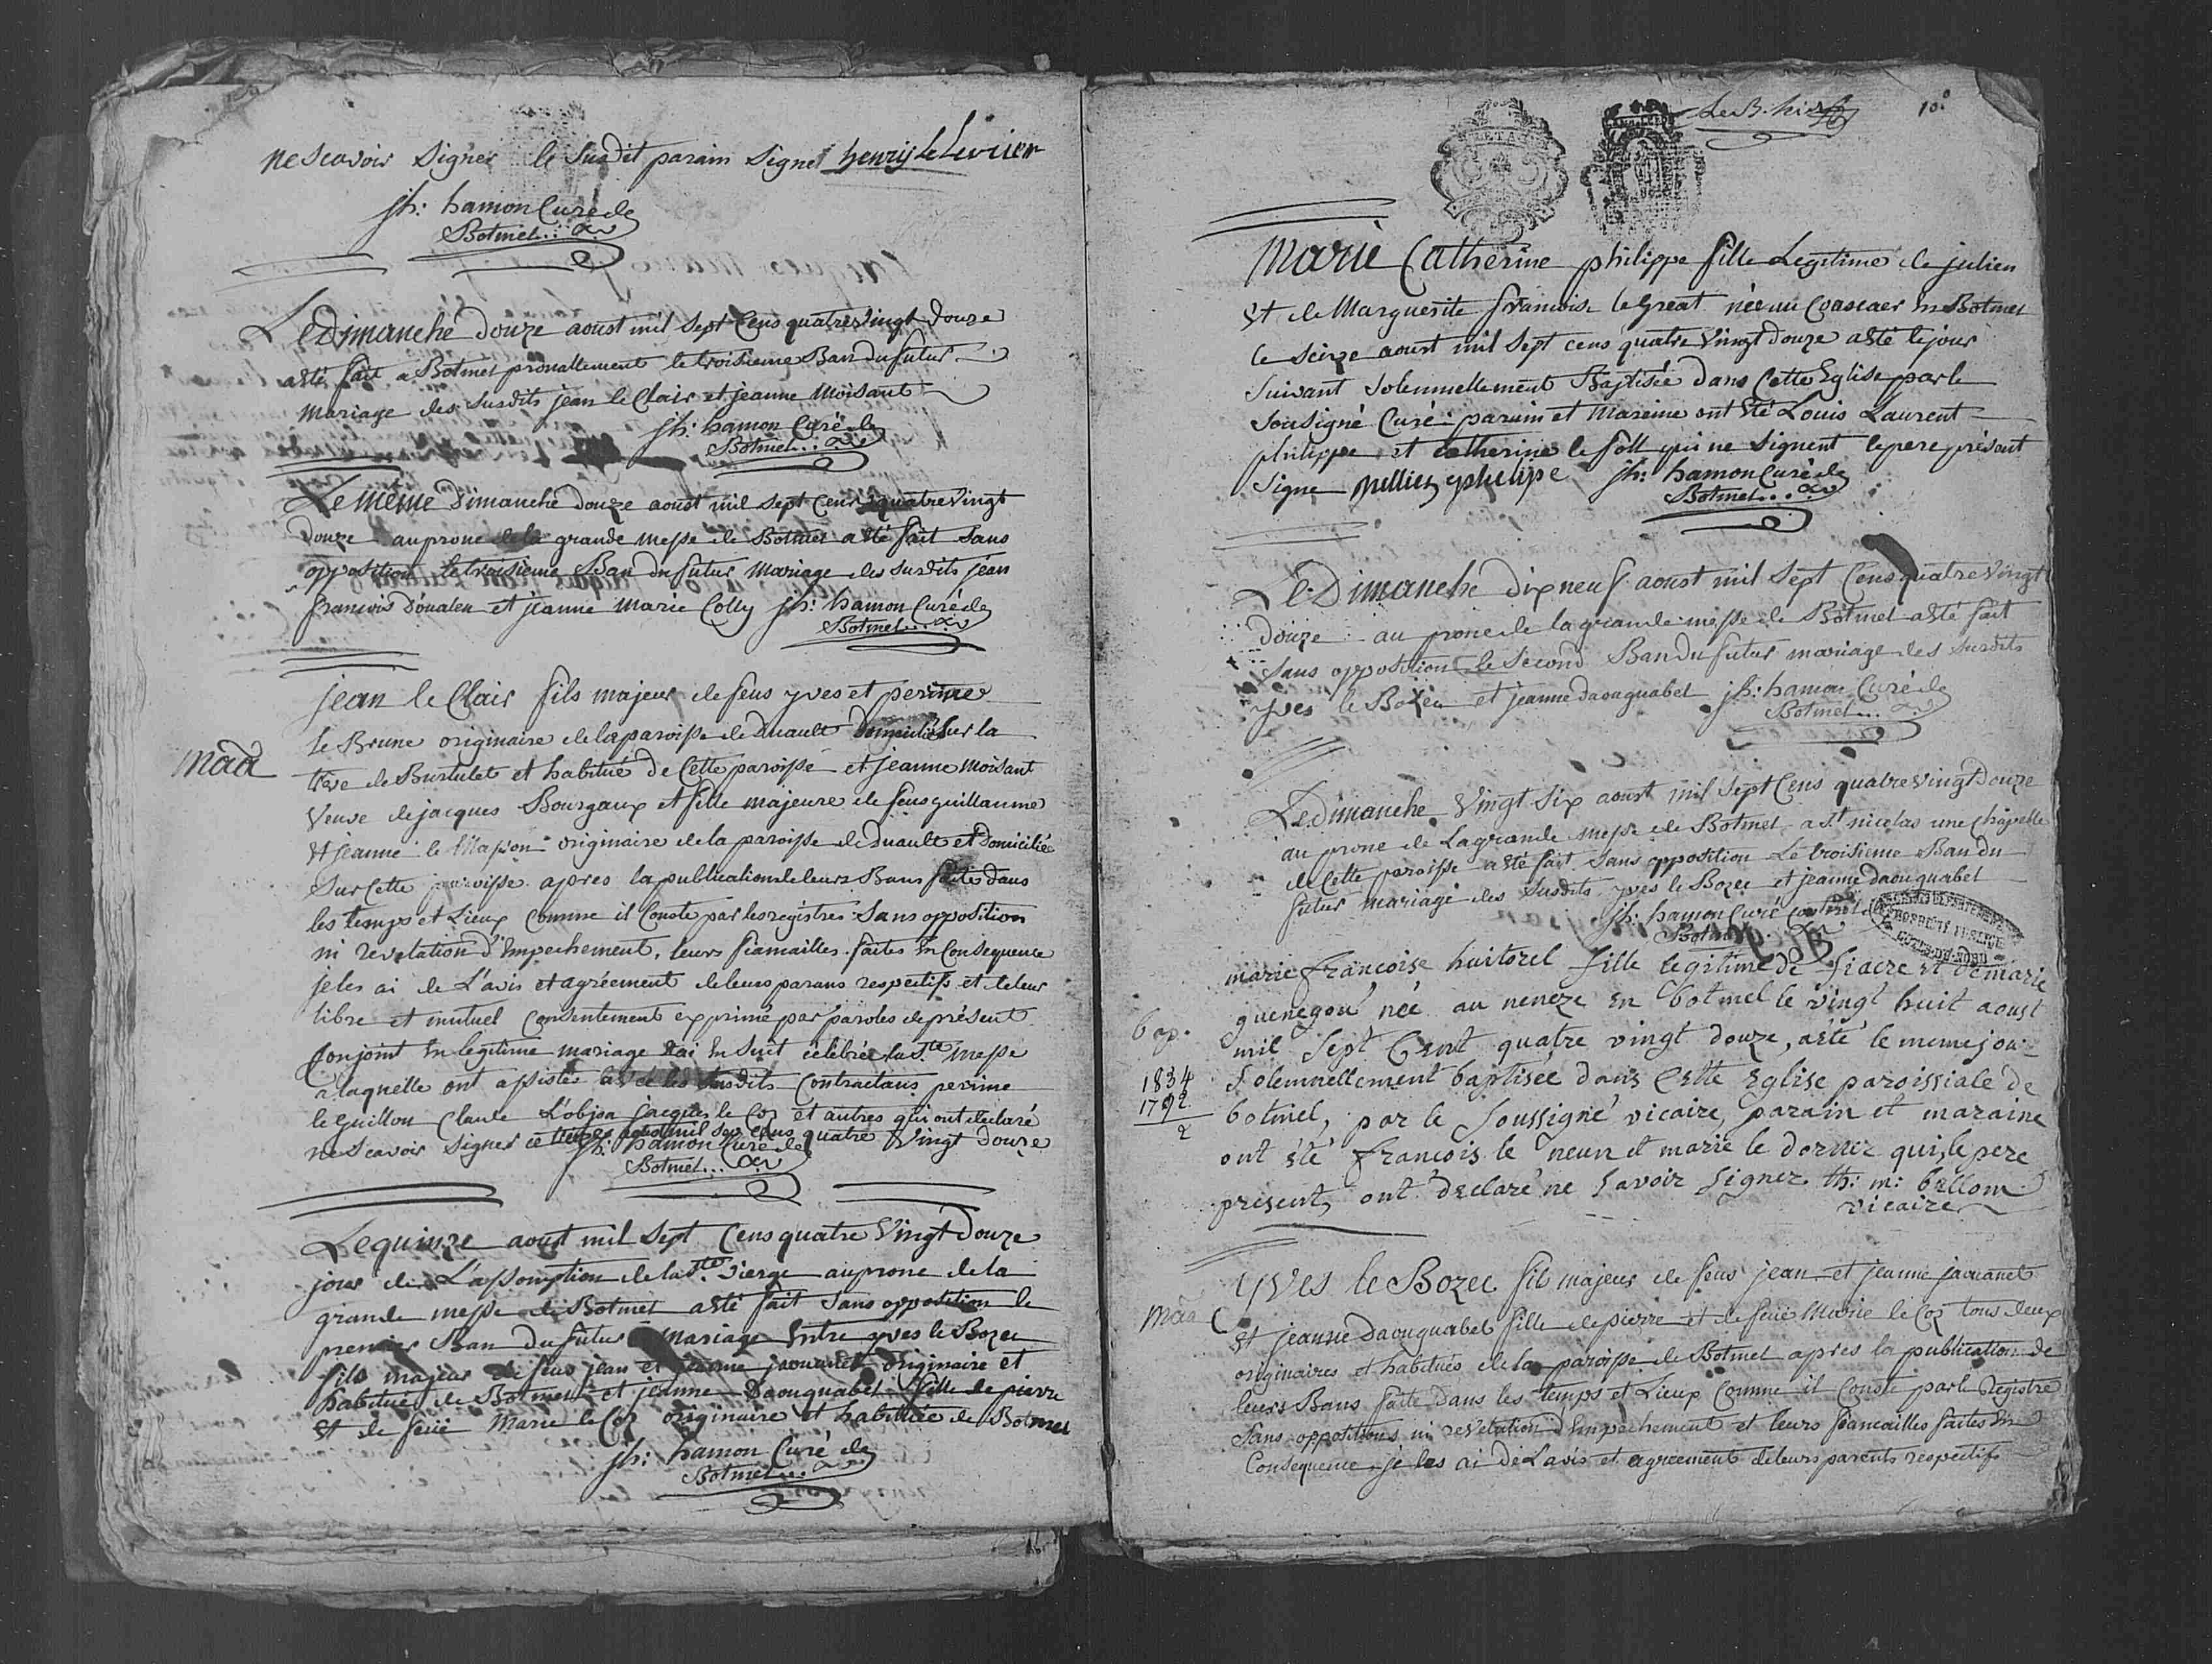 ne scavoir signer le susdit parain signe henry le levier
jh: hamon Curé de
Botmel...
Le Dimanche douze aoust mil sept Cens quatre vingt douze
a été fait a Botmel pronallement le troisieme Ban du futur
mariage des susdits jean le Clair et jeanne Moisant
jh: hamon Curé de
Botmel...
Le même Dimanche douze aoust mil sept Cens quatre vingt
douze au prone de la grande messe de Botmel a été fait sans
opposition le troisieme Ban du futur mariage des susdits jean
francois Doualen et jeanne marie Colly jh: hamon Curé de
Botmel...
jean le Clair fils majeur de feus yves et perinne
le Brune originaire de la paroisse de duault Domicilié sur la
Maâ
treve de Burtulet et habitué de Cette paroisse et jeanne Moisant
veuve de jacques Bourgaux et fille majeure de feus guillaume
et jeanne le Masson originaire de la paroisse de duault et domiciliée
sur Cette paroisse apres la publication de leurs Bans faite dans
les temps et Lieux Comme il Conste par les registres sans opposition
ni revelation d'Empechement, leurs fiancailles faites En Consequence
je les ai de L'avis et agréement de leurs parans respectifs et de leur
libre et mutuel Consentement exprimé par paroles de présent
Conjoint En legitime mariage & ai En suit celebrée la Ste messe
a laquelle ont assistés avec les susdits Contractans perinne
le Guillou Claude L'objoa jacques le Coz et autres qui ont declaré
ne scavoir signer ce treize aout mil sep cens quatre vingt douze
jh: hamon Curé de
Botmel...
Le quinze aoust mil sept Cens quatre vingt douze
jour de L'assomption de la Ste vierge au prone de la
grande messe de Botmel a été fait sans opposition le
premier Ban du futur mariage Entre yves le Bozec
fils majeur de feus jean et jeanne jaouanet originaire et
habitué de Botmel et jeanne Daouguabel fille de pierre
et de feüe Marie le Coz originaire et habituée de Botmel
jh: hamon Curé de
Botmel...
Marie Catherine philippe fille Legitime de julien
et de Marguerite francoise le Great née au Coascaer en Botmel
le seize aoust mil sept cens quatre vingt douze a été le jour
suivant solemnellement Baptisée dans Cette Eglise par le
soussigné Curé: parain et Mareine ont été Louis Laurent
philippe et catherine le foll qui ne signent le pere présent
signe phelipe jh: hamon Curé de
Botmel...
Le Dimanche dix neuf aoust mil sept Cens quatre vingt
douze au prone de la grande messe de Botmel a été fait
sans opposition le second Ban du futur mariage des susdits
yves le Bozec et jeanne daouguabel jh: hamon Curé de
Botmel...
Le dimanche vingt six aoust mil sept Cens quatre vingt douze
au prone de La grande messe de Botmel a St nicolas une chapelle
de Cette paroisse a été fait sans opposition Le troisieme Ban du
futur mariage des susdits yves le Bozec et jeanne daouguabel
jh: hamon Curé
Botmel
marie françoise huitorel fille legitime de fiacre et de marie
guenegou née au neneze en botmel le vingt huit aoust
bap.
mil Sept Cent quatre vingt douze, a été le meme jour
1834
Solemnellement baptisée dans Cette Eglise paroissiale de
1792
botmel, par le Soussigné vicaire, parain et maraine
2
ont été francois le neun et marie le dorner qui, le pere
present, ont declaré ne Savoir Signer. th: m: ballom
vicaire
Yves le Bozec fils majeur de feus jean et jeanne jaouanet
Maâ
et jeanne Daouguabel fille de pierre et de feüe Marie le Coz tous deux
originaires et habitués de la paroisse de Botmel apres la publication de
leurs Bans faite dans les temps et Lieux Comme il Conste par le Registre
sans oppositions ni revelation d'Empechement et leurs fiancailles faites En
Consequence, je les ai de L'avis et agreement de leurs parents respectifs